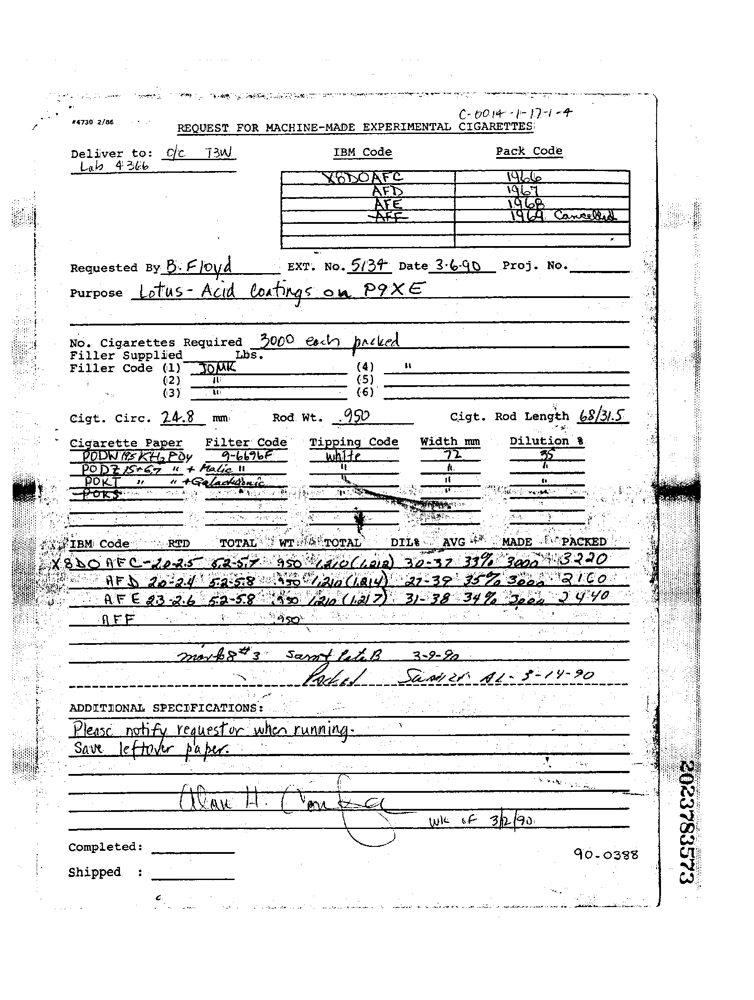 C-0014-1-17-1-4
#4730 2/86
REQUEST FOR MACHINE-MADE EXPERIMENTAL CIGARETTES
Deliver to: C/C T3W IBM Code Pack Code
Lab 4366
X8DOAFC 1966
AFD 1967
AFE 1968
AFF 1969 Cancelled
Requested By B. Floyd EXT. No. 5134 Date 3-6-90 Proj. No.
Purpose Lotus-Acid Coatings on P9XE
No. Cigarettes Required 3000 each packed
Filler Supplied Lbs.
Filler Code (1) JOMK (4) "
(2) " (5)
(3) " (6)
Cigt. Circ. 24.8 mm Rod Wt. .950 Cigt. Rod Length 68/31.5
Cigarette Paper Filter Code Tipping Code Width mm Dilution %
PODW KH2PO4 9-6696F white 72 35
PODZ " + Malic " " " "
POKT " " + " " "
POKS " "
IBM Code RTD TOTAL WT TOTAL DIL% AVG MADE PACKED
X8DOAFC-2.0-2.5 5.2-5.7 950 1.210 (1.212) 30-37 33% 3000 3220
AFD 2.0-2.4 5.2-5.8 950 1.210 (1.214) 27-39 35% 3000 2160
AFE 2.3-2.6 5.2-5.8 950 1.210 (1.217) 31-38 34% 3000 2440
AFF 950
mark 8 #3 3-9-90
Packed 3-14-90
ADDITIONAL SPECIFICATIONS:
Please notify requestor when running.
Save leftover paper.
Alan H.
Wk of 3/2/90
Completed:
90-0388
Shipped :
2023783573